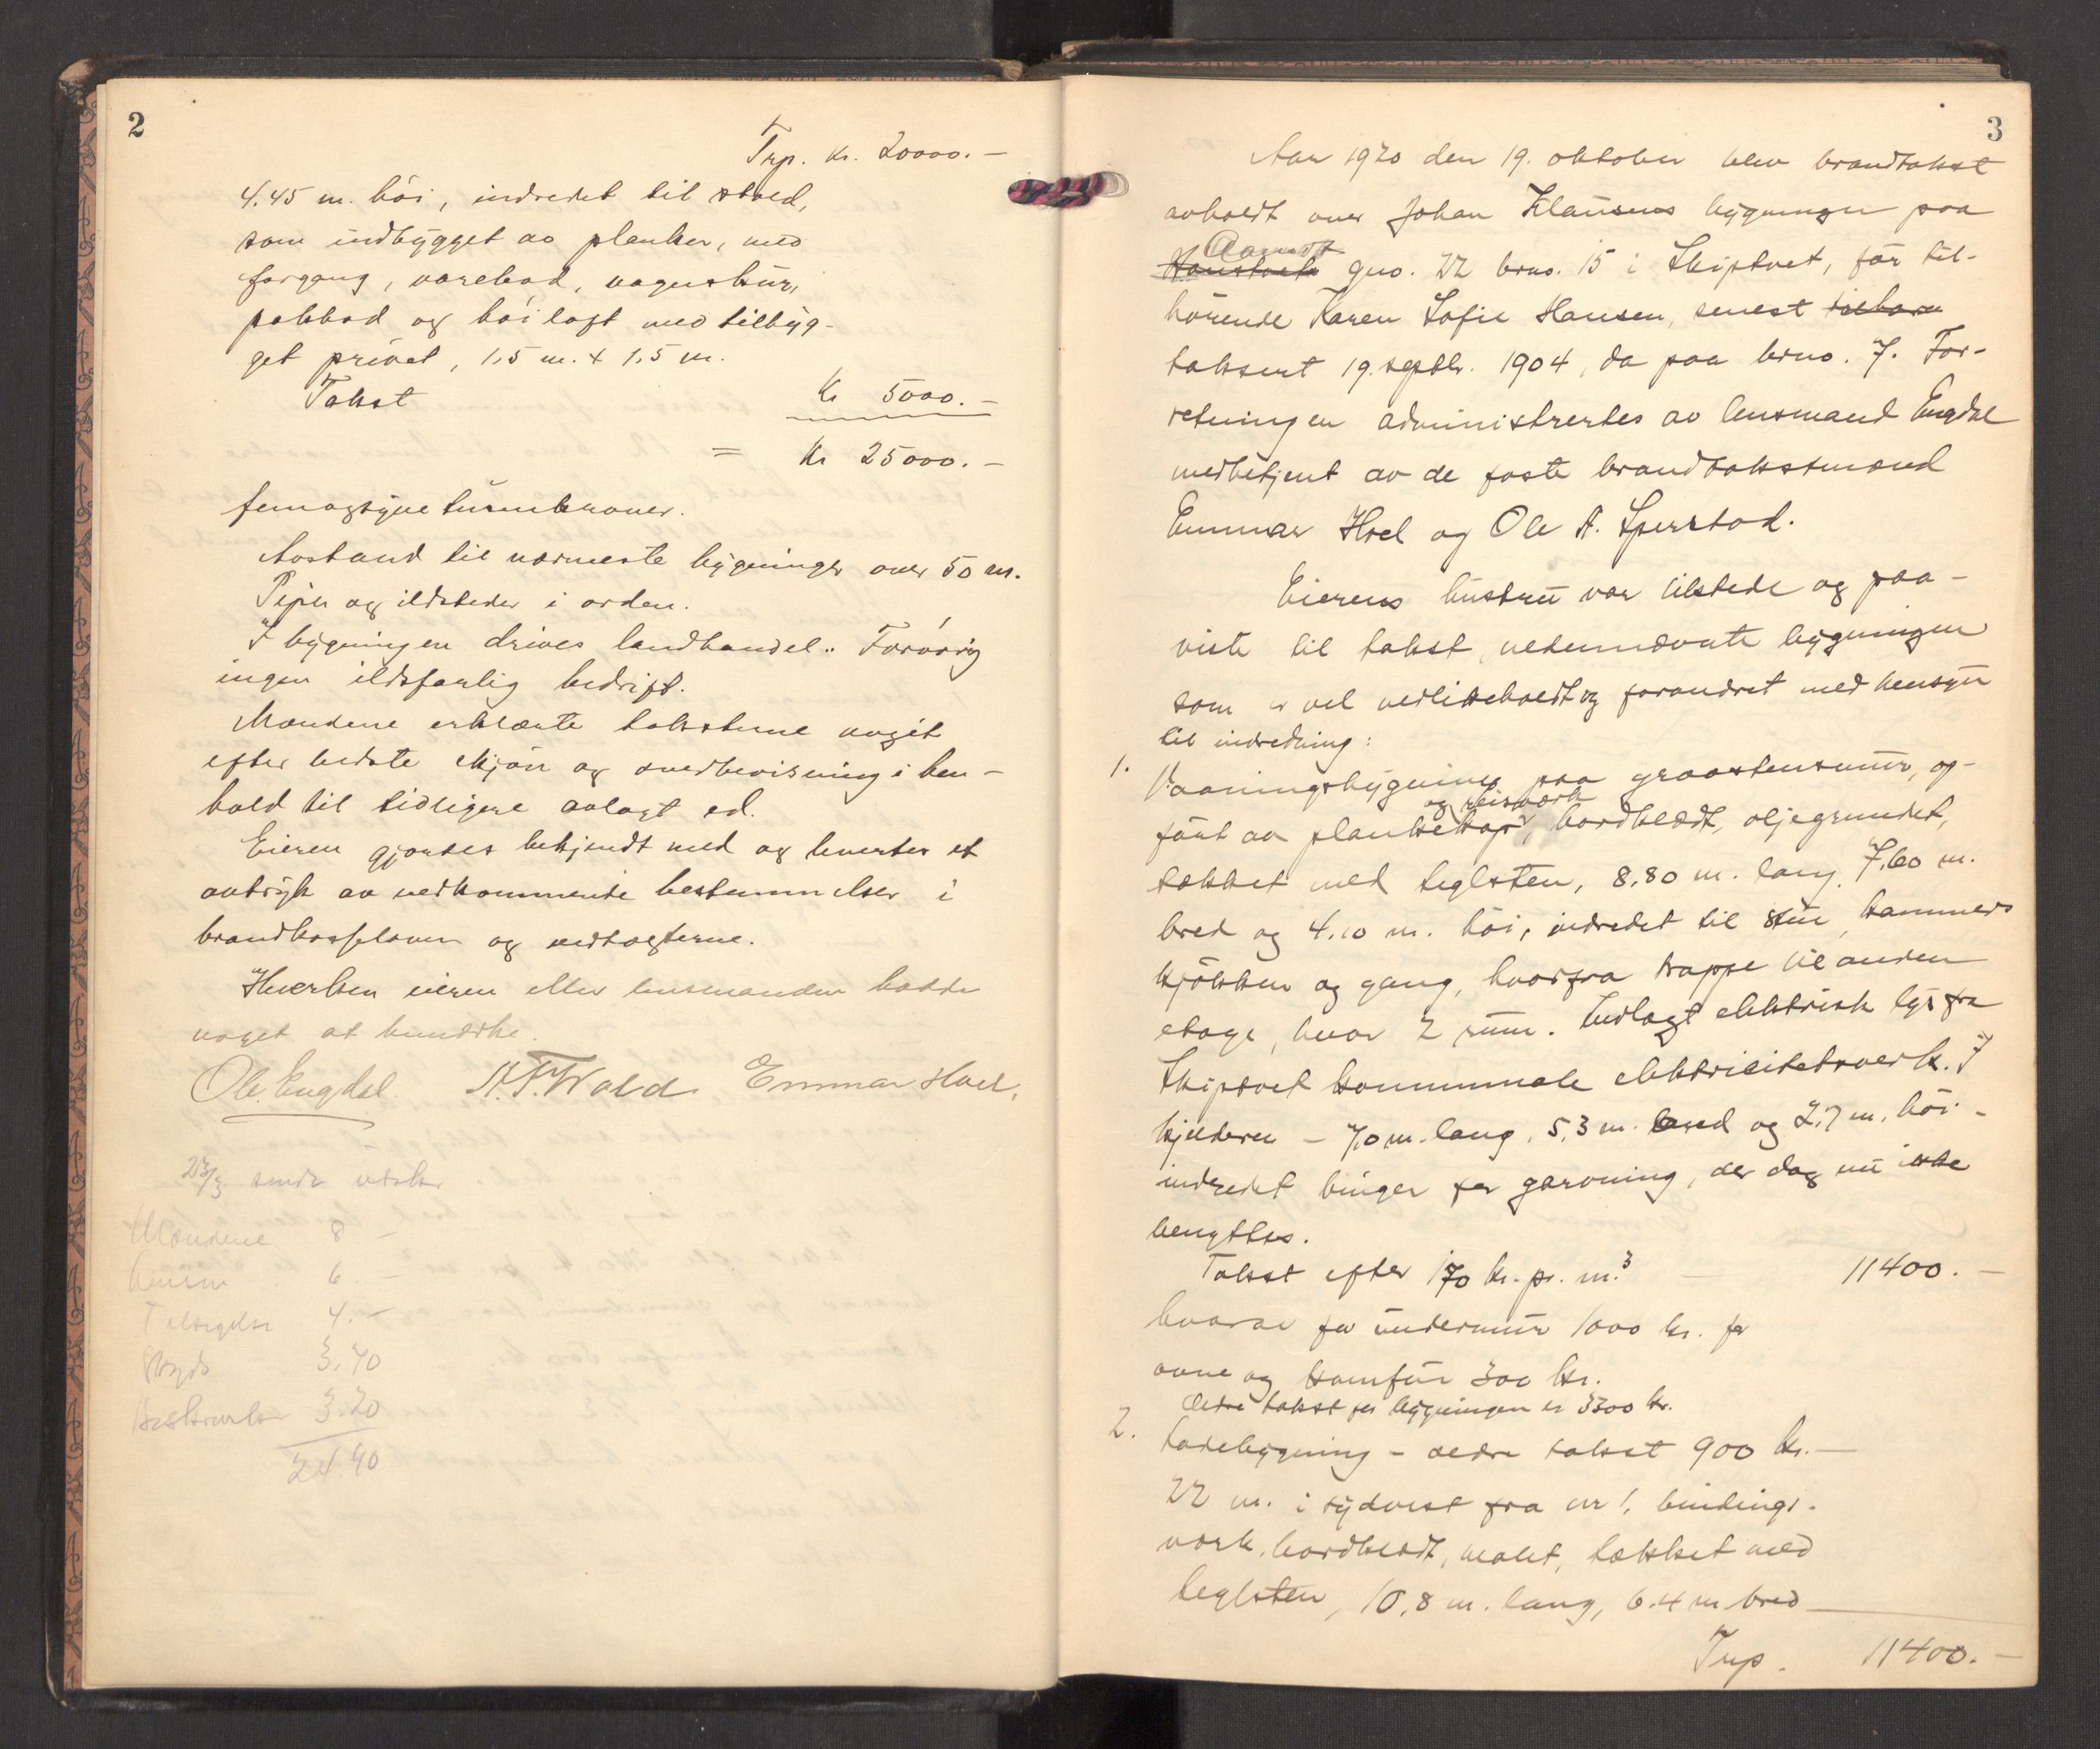 2
Trp. kr. 20000.-
4.45 m. höi, indredet til stald,
som indbygget av planker, med
forgang, varebod, vognskur,
pakbod og höiloft med tilbyg-
get privet, 1,5 m. x 1,5 m.
Takst kr 5000.-
= kr 25000.-
femogtyvetusenkroner.
Avstand til nærmeste bygninger over 50 m.
Piper og ildsteder i orden.
I bygningen drives landhandel. Forövrig
ingen ildsfarlig bedrift.
Mændene erklærte taksterne avgit
efter bedste skjön og overbevisning i hen-
hold til tidligere avlagt ed.
Eieren gjordes bekjendt med og levertes et
avtryk av vedkommende bestemmelser i
brandkasseloven og vedtægterne.
Hverken eieren eller lensmanden hadde
noget at bemærke.
Ole Engdal. N. T. Wold Emmar Hoel.
23/3 sendt utskr
Mændene 8 -
Lensm 6. -
Tilsigelse 4. -
Skyds 3,70
Utskrivelse 3.20
24.90
3
Aar 1920 den 19. oktober blev brandtakst
avholdt over Johan Klausens bygninger paa
gno. 22 brno. 15 i Skiptvet, för til-
hörende Karen Sofie Hansen, senest
taksert 19. septbr. 1904, da paa brno. 7. For-
retningen administrertes av lensmand Engdal
medbetjent av de faste brandtakstmænd
Emmar Hoel og Ole A. Sperstad.
Eierens hustru var tilstede og paa-
viste til takst nedennævnte bygninger
som er vel vedlikeholdt og forandret med hensyn
til indredning:
1. Vaaningsbygning paa graastensmur, op-
fört av plankelap og reisverk, bordklædt, oljegrundet,
tækket med teglsten, 8,80 m. lang, 7,60 m.
bred og 4,10 m. höi, indredet til stue, kammers
kjökken og gang, hvorfra trappe til anden
etage, hvor 2 rum. Indlagt elektrisk lys fra
Skiptvet kommunale elektricitetsverk. I
kjelderen - 7,0 m. lang, 5,3 m. bred og 2,7 m. höi -
indredet binger for garvning, der dog nu ikke
benyttes.
Takst efter 170 kr. pr. m.³ - 11400.-
hvorav for undermur 1000 kr. for
ovne og komfur 300 kr.
Ældre takst for bygningen er 3300 kr.
2. Ladebygning - ældre takst 900 kr. -
22 m. i sydvest fra nr 1, bindings-
verk, bordklædt, malet, tækket med
teglsten, 10,8 m. lang, 6.4 m bred
Trp. 11400.-